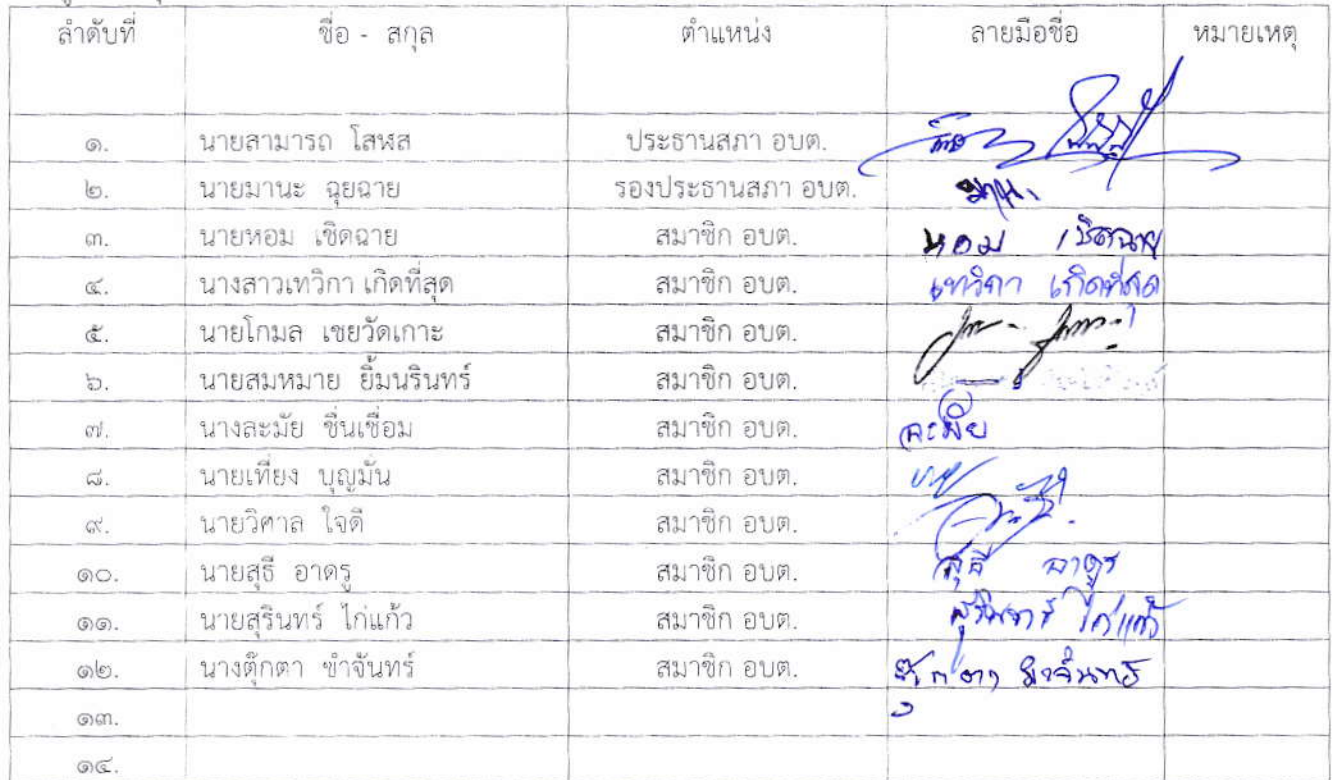 ลำดับที่ ชื่อ - สกุล ตำแหน่ง ลายมือชื่อ หมายเหตุ
๑. นายสามารถ โสฬส ประธานสภา อบต.
๒. นายมานะ ฉุยฉาย รองประธานสภา อบต. มานะ
๓. นายหอม เชิดฉาย สมาชิก อบต. หอม เชิดฉาย
๔. นางสาวเทวิกา เกิดที่สุด สมาชิก อบต. เทวิกา เกิดที่สุด
๕. นายโกมล เชยวัดเกาะ สมาชิก อบต.
๖. นายสมหมาย ยิ้มนรินทร์ สมาชิก อบต.
๗. นางละมัย ชื่นเชื่อม สมาชิก อบต. ละมัย
๘. นายเที่ยง บุญมั่น สมาชิก อบต.
๙. นายวิศาล ใจดี สมาชิก อบต.
๑๐. นายสุธี อาดรู สมาชิก อบต. สุธี อาดูร
๑๑. นายสุรินทร์ ไก่แก้ว สมาชิก อบต. สุรินทร์ ไก่แก้ว
๑๒. นางตุ๊กตา ขำจันทร์ สมาชิก อบต. ตุ๊กตา ขำจันทร์
๑๓.
๑๔.